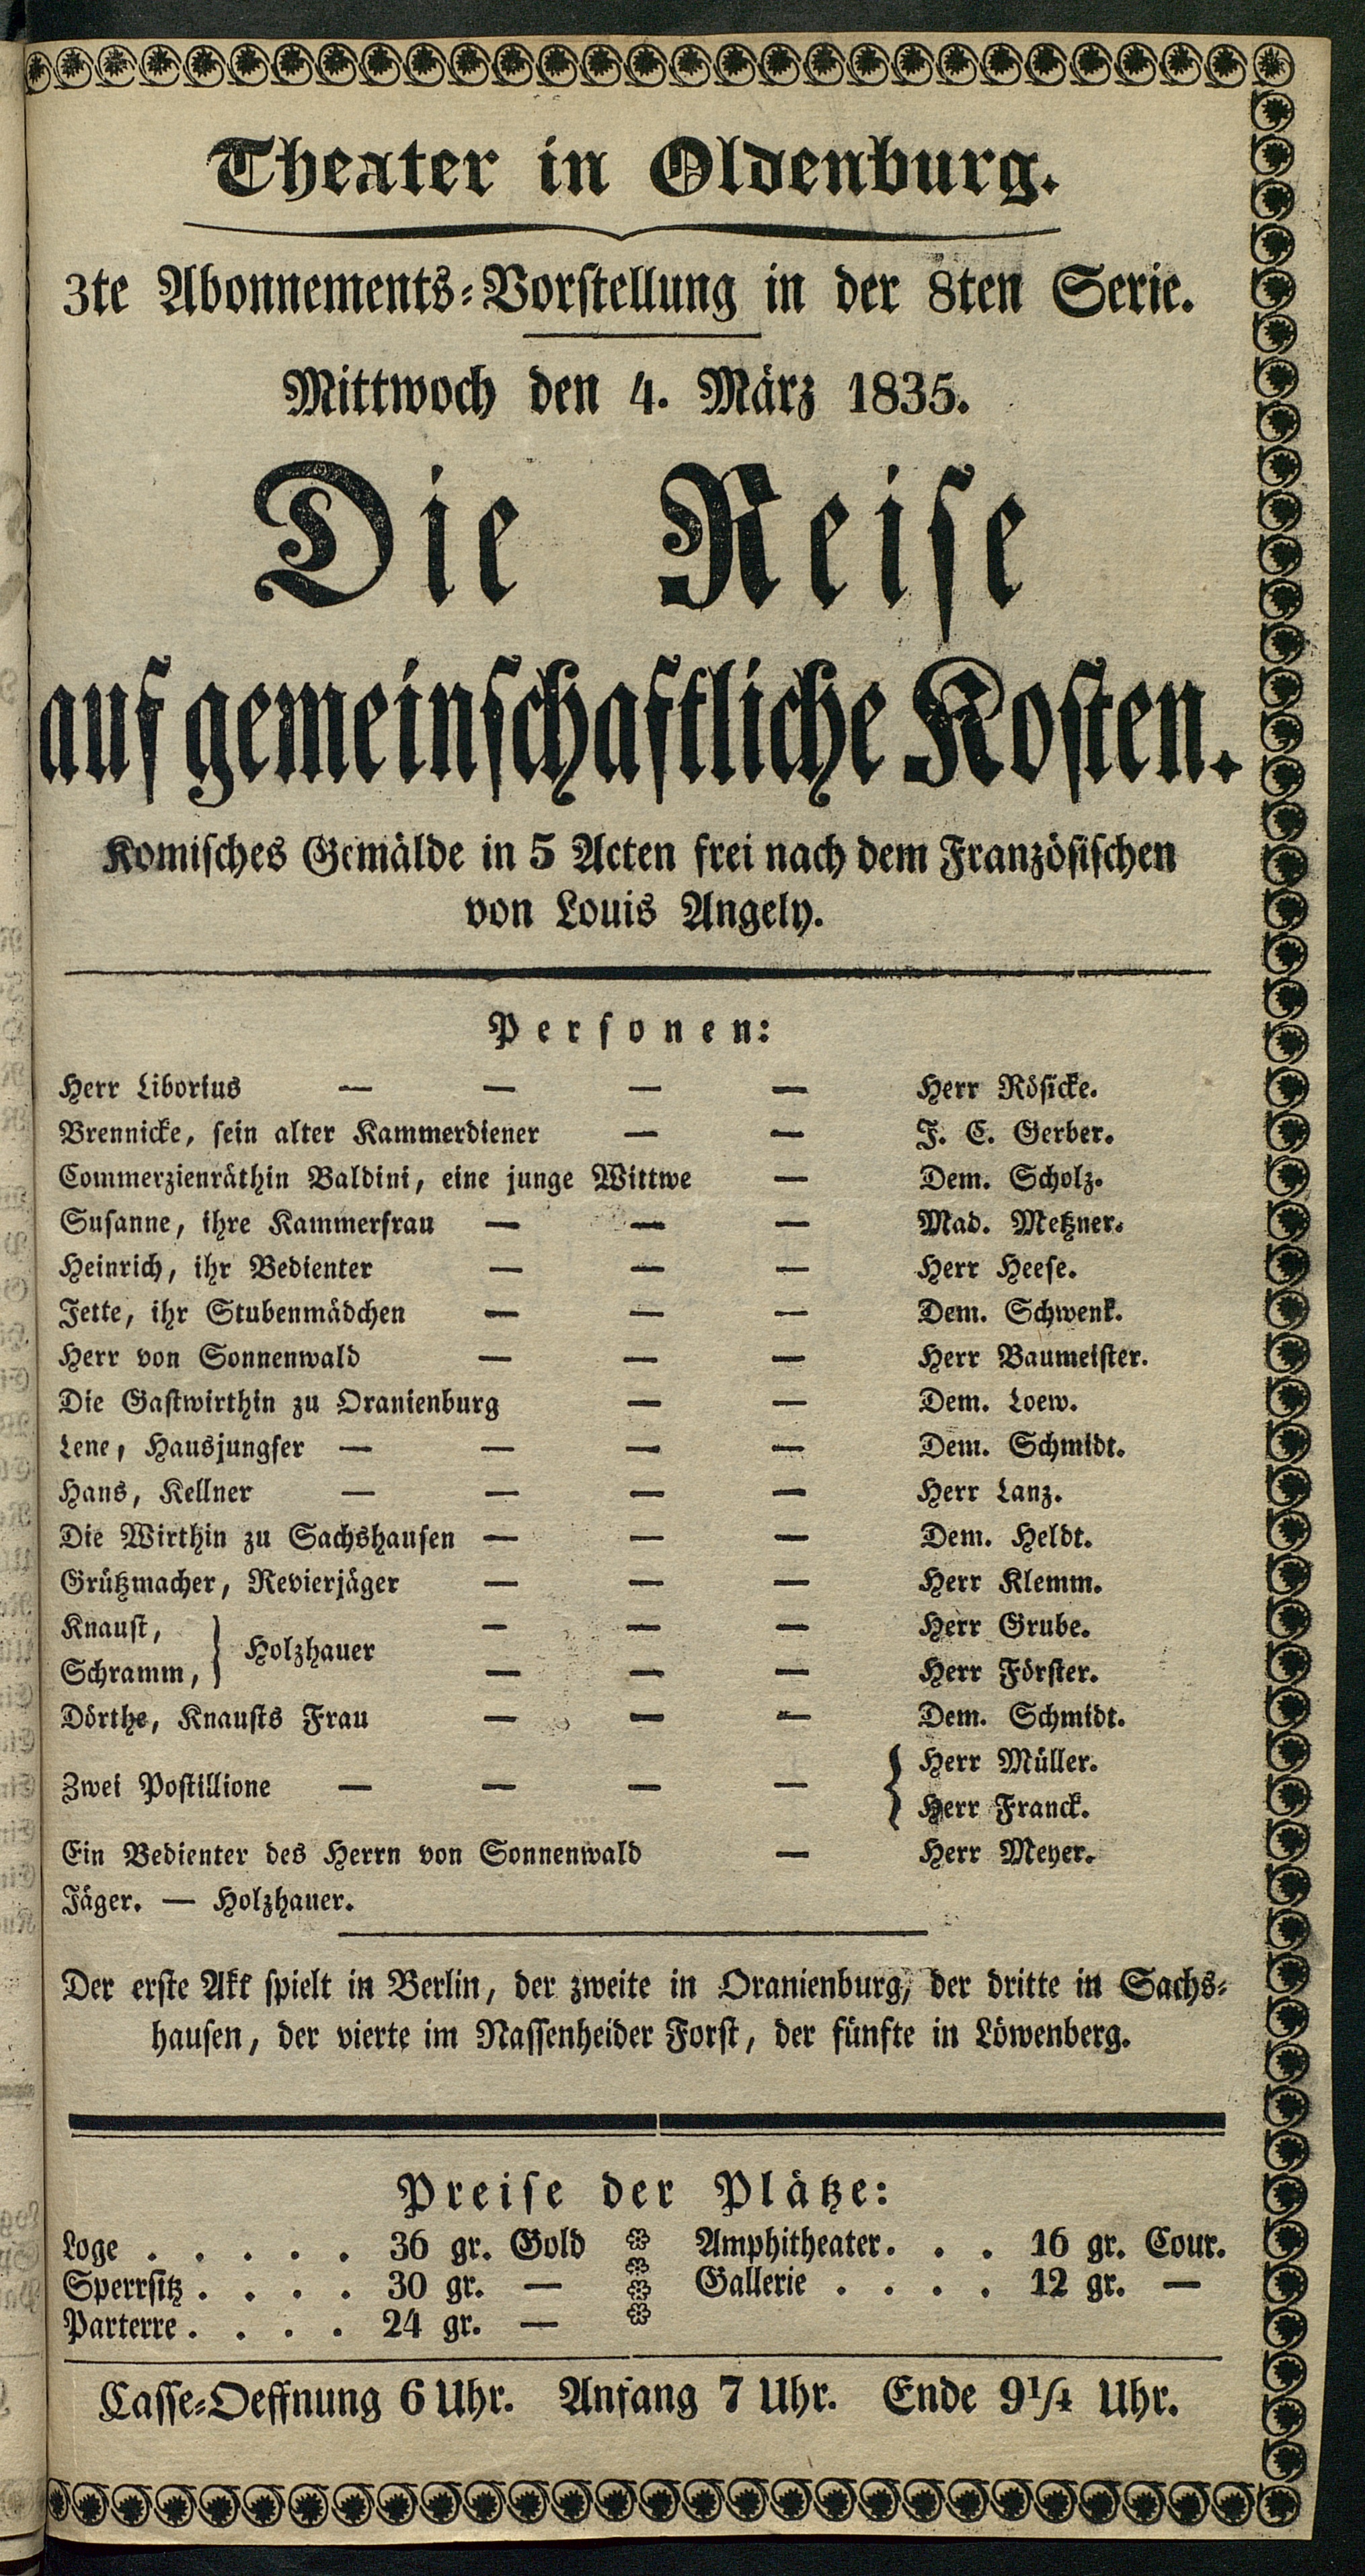 Theater in Oldenburg.
3te Abonnements-Vorstellung in der 8ten Serie.
Mittwoch den 4. März 1835.
Die Reise
auf gemeinschaftliche Kosten.
Komisches Gemälde in 5 Acten frei nach dem Französischen
von Louis Angely.
Personen:
Herr Liborius — — — — Herr Rösicke.
Brennicke, sein alter Kammerdiener — — J. C. Gerber.
Commerzienräthin Baldini, eine junge Wittwe — Dem. Scholz.
Susanne, ihre Kammerfrau — — — Mad. Metzner.
Heinrich, ihr Bedienter — — — Herr Heese.
Jette, ihr Stubenmädchen — — — Dem. Schwenk.
Herr von Sonnenwald — — — Herr Baumeister.
Die Gastwirthin zu Oranienburg — — Dem. Loew.
Lene, Hausjungfer — — — — Dem. Schmidt.
Hans, Kellner — — — — Herr Lanz.
Die Wirthin zu Sachshausen — — — Dem. Heldt.
Grützmacher, Revierjäger — — — Herr Klemm.
Knaust, } Holzhauer — — — Herr Grube.
Schramm, — — — Herr Förster.
Dörthe, Knausts Frau — — — Dem. Schmidt.
Zwei Postillione — — — — { Herr Müller.
Herr Franck.
Ein Bedienter des Herrn von Sonnenwald — Herr Meyer.
Jäger. — Holzhauer.
Der erste Akt spielt in Berlin, der zweite in Oranienburg, der dritte in Sachs-
hausen, der vierte im Nassenheider Forst, der fünfte in Löwenberg.
Preise der Plätze:
Loge . . . . . 36 gr. Gold Amphitheater. . . 16 gr. Cour.
Sperrsitz . . . . 30 gr. — Gallerie . . . . 12 gr. —
Parterre . . . . 24 gr. —
Casse-Oeffnung 6 Uhr. Anfang 7 Uhr. Ende 9¼ Uhr.